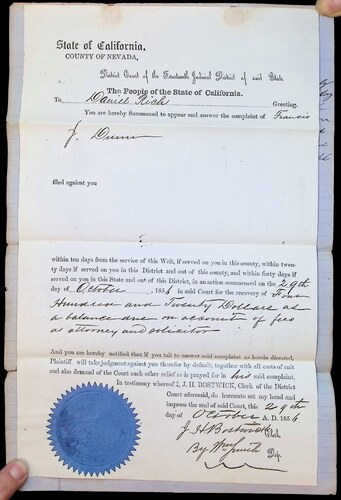 State of California,
COUNTY OF NEVADA,
District Court of the Fourteenth Judicial District of said State.
The People of the State of California.
To Daniel Rich Greeting.
You are hereby Summoned to appear and answer the complaint of Francis
J. Dunn
filed against you
within ten days from the service of this Writ, if served on you in this county, within twen-
ty days if served on you in this District and out of this county, and within forty days if
served on you in this State and out of this District, in an action commenced on the 29th
day of October 1856 in said Court for the recovery of Four
Hundred and Twenty Dollars as
a balance due on account of fees
as attorney and solicitor
And you are hereby notified that if you fail to answer said complaint as herein directed,
Plaintiff will take judgment against you therefor by default, together with all costs of suit
and also demand of the Court such other relief as is prayed for in his said complaint.
In testimony whereof I, J. H. BOSTWICK, Clerk of the District
Court aforesaid, do hereunto set my hand and
impress the seal of said Court, this 29th
day of October A. D. 1856
J. H. Bostwick Clerk.
By Wm Smith Dep.